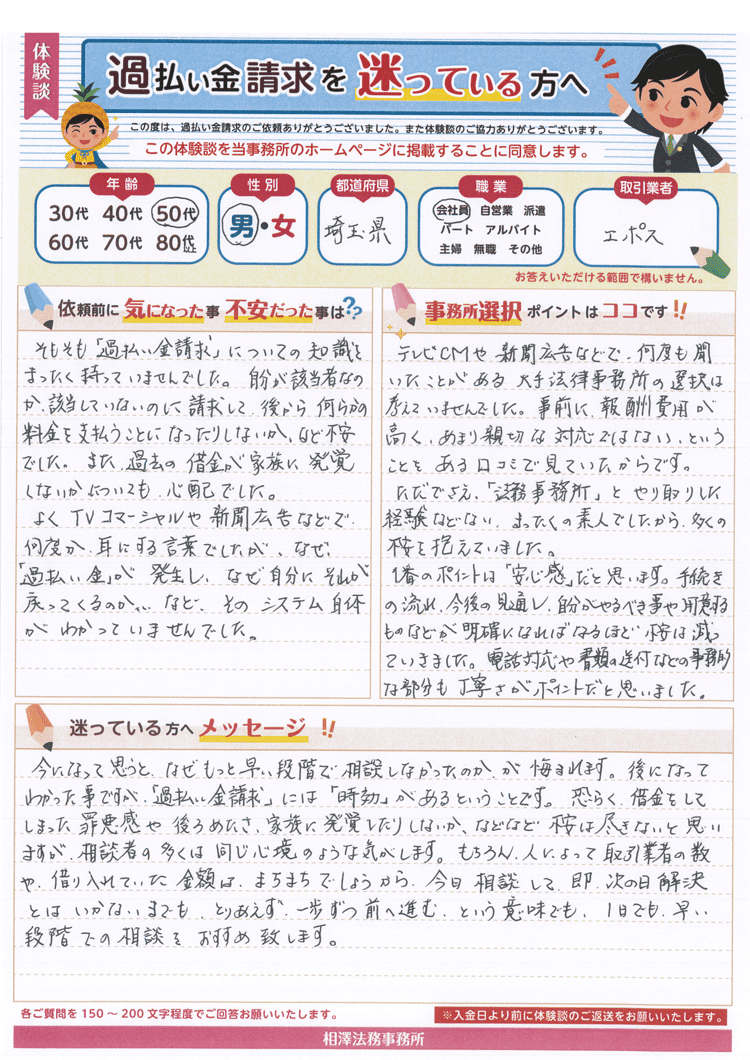 体験談
過払い金請求を 迷っている 方へ
この度は、過払い金請求のご依頼ありがとうございました。また体験談のご協力ありがとうございます。
この体験談を当事務所のホームページに掲載することに同意します。
年齢
30代 40代 50代
60代 70代 80代以上
性別
男・女
都道府県
埼玉県
職業
会社員 自営業 派遣
パート アルバイト
主婦 無職 その他
取引業者
エポス
お答えいただける範囲で構いません。
依頼前に 気になった事 不安だった事は??
そもそも「過払い金請求」についての知識を
まったく持っていませんでした。自分が該当者なの
か、該当していないのに請求して、後から何らかの
料金を支払うことになったりしないか、など不安
でした。また、過去の借金が家族に発覚
しないかについても、心配でした。
よくTVコマーシャルや新聞広告などで、
何度か、耳にする言葉でしたが、なぜ、
「過払い金」が発生し、なぜ自分にそれが
戻ってくるのか…など、そのシステム自体
がわかっていませんでした。
事務所選択 ポイントは ココです!!
テレビCMや新聞広告などで、何度も聞
いたことがある大手法律事務所の選択は
考えていませんでした。事前に、報酬費用が
高く、あまり親切な対応ではない、という
ことをある口コミで見ていたからです。
ただでさえ、「法務事務所」とやり取りした
経験などない、まったくの素人でしたから、多くの
不安を抱えていました。
1番のポイントは「安心感」だと思います。手続き
の流れ、今後の見通し、自分がやるべき事や用意する
ものなどが明確になればなるほど不安は減っ
ていきました。電話対応や書類の送付などの事務的
な部分も丁寧さがポイントだと思いました。
迷っている方へ メッセージ !!
今になって思うと、なぜもっと早い段階で相談しなかったのか、が悔まれます。後になって
わかった事ですが、「過払い金請求」には「時効」があるということです。恐らく、借金をして
しまった罪悪感や後ろめたさ、家族に発覚したりしないか、などなど不安は尽きないと思い
ますが、相談者の多くは同じ心境のような気がします。もちろん、人によって取引業者の数
や、借り入れていた金額は、まちまちでしょうから、今日相談して、即、次の日解決
とはいかないまでも、とりあえず、一歩ずつ前へ進む、という意味でも、1日でも早い
段階での相談をおすすめ致します。
各ご質問を150〜200文字程度でご回答お願いいたします。
※入金日より前に体験談のご返送をお願いいたします。
相澤法務事務所